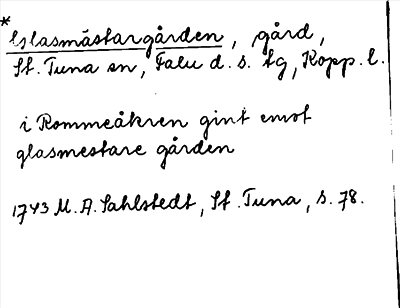 *
Glasmästargården, gård,
St. Tuna sn, Falu d. s. tg, Kopp. l.
i Rommeåkren gint emot
glasmestare gården
1743 M. A. Sahlstedt, St. Tuna, s. 78.